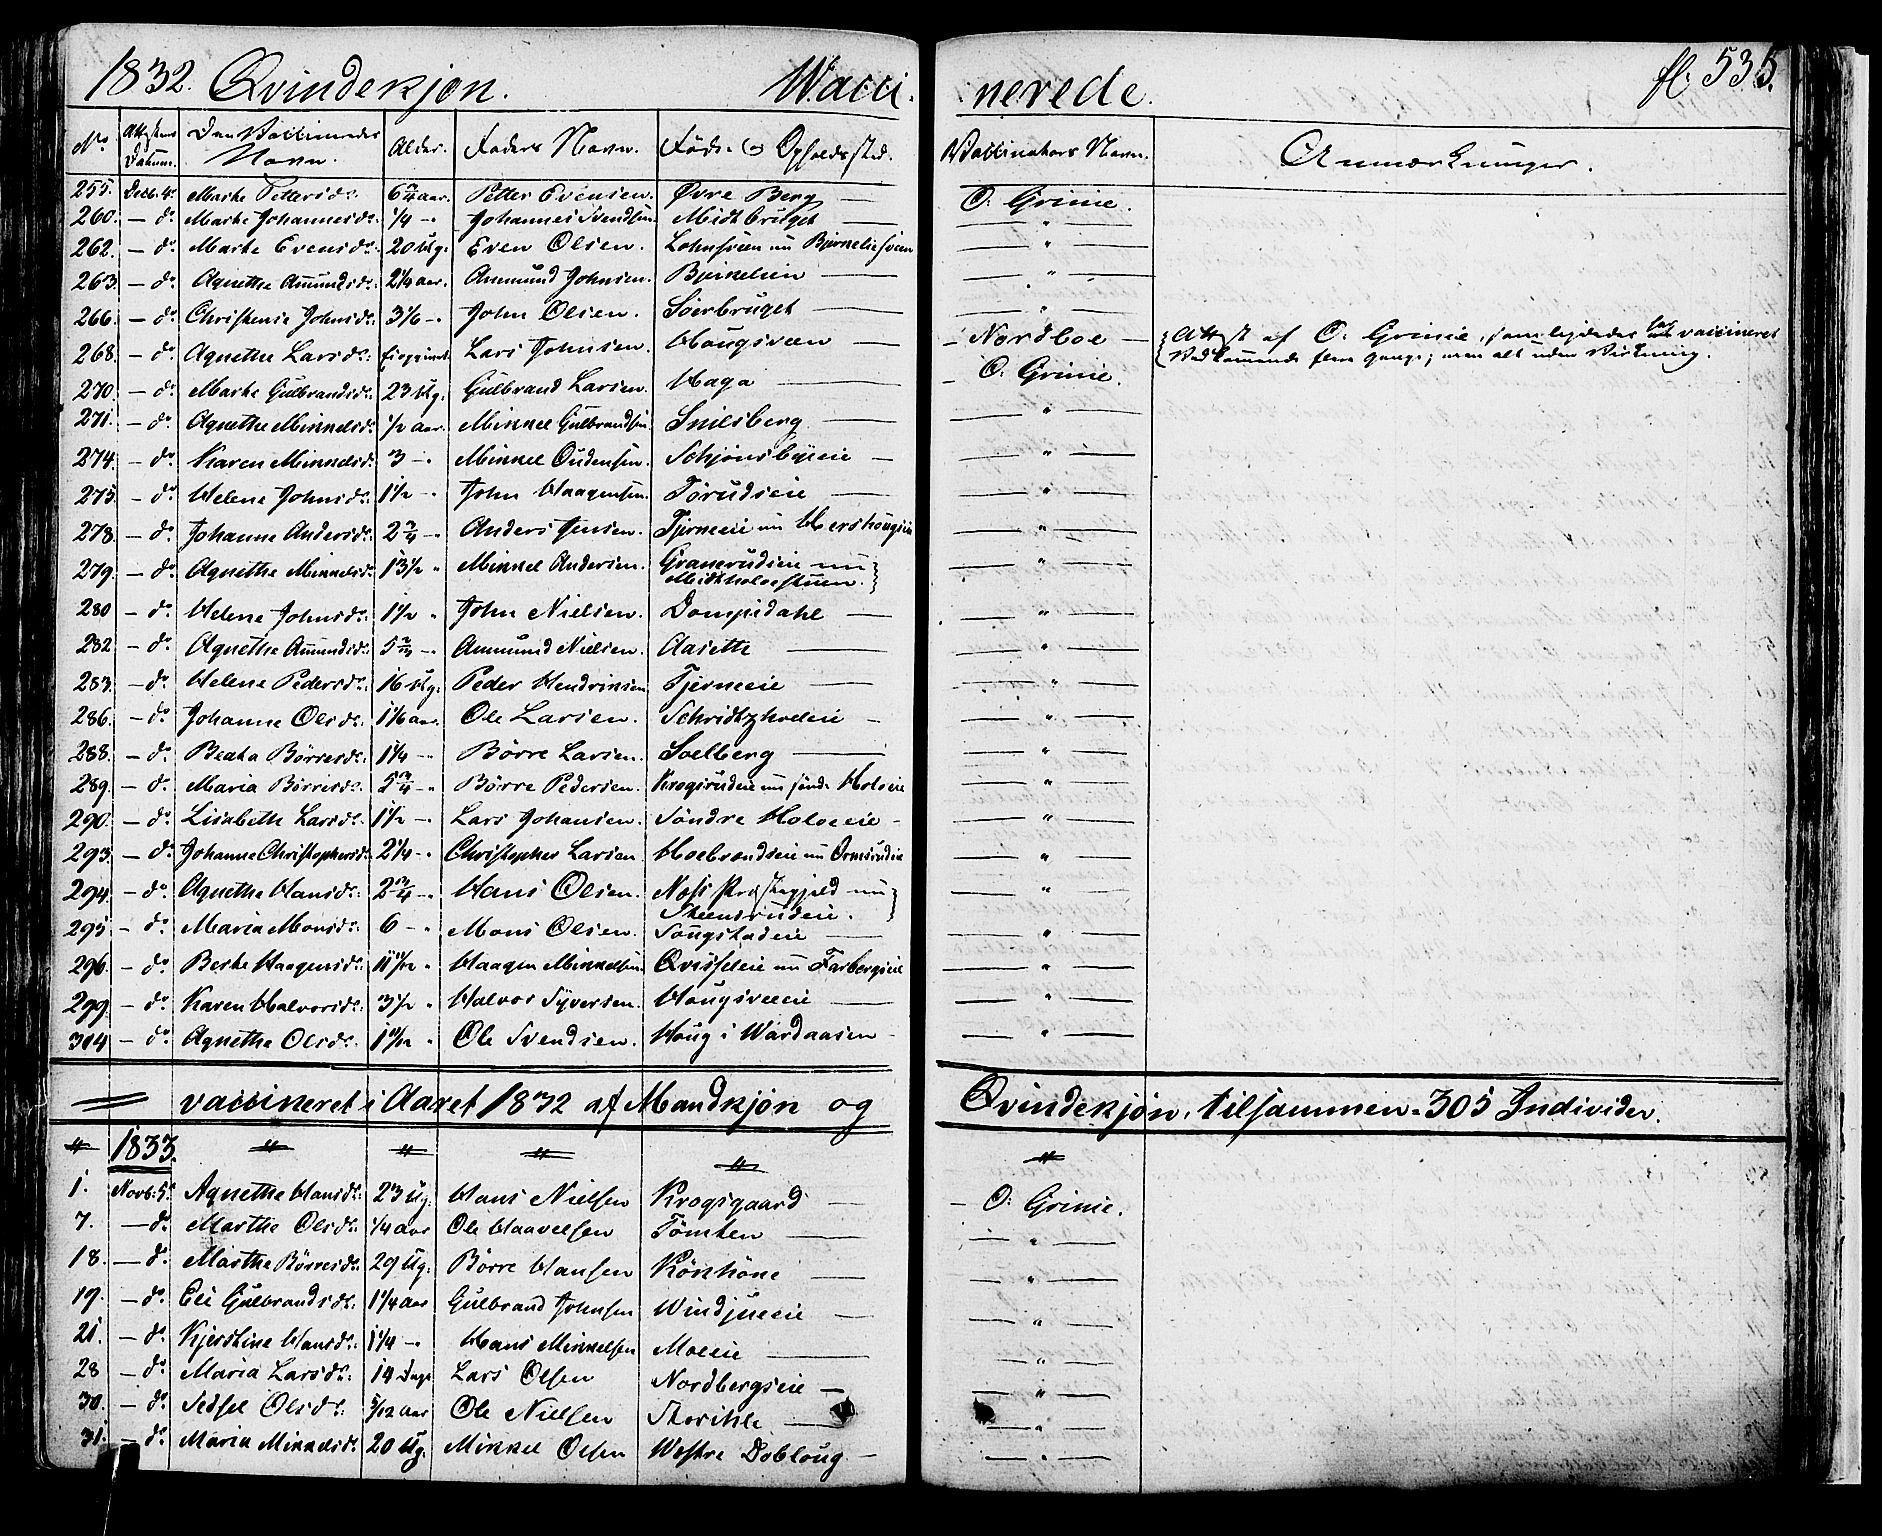 1832. Qvindekjøn. Wacci- nerede. fl. 535.
No. Attestens Datum. Den Vaccineredes Navn. Alder. Faders Navn. Føde- og Opholdssted. Vaccinators Navn. Anmærkninger.
255. Decb. 4de Marthe Pettersdr. 6 3/4 aar. Petter Evensen. Øvre Berg — O: Grinie.
260. — do Marthe Johannesdr. 1/4 — Johannes Svendsen Midtbruget — "
262. — do Marthe Evensdr. 20 Ug. Even Olsen. nu Bjørneliesveen — "
263. — do Agnethe Amundsdr. 2 1/4 aar. Ammund Johnsen. Bjørnelien — "
266. — do Christense Johnsdr. 3 1/6 — John Olsen. Soerbruget — "
268. — do Agnethe Larsdr. Lars Johnsen. Hougsveen — Nordboe — Attest af O. Grinie, som ligeledes har vaccineret
Vedkommende flere gange; men alt uden Virkning.
270. — do Marthe Gulbrandsdr. 23 Ug. Gulbrand Larsen. Haga — O: Grinie.
271. — do Agnethe Mikkelsdr. 1/2 aar. Mikkel Gulbrandsen Snilsberg — "
274. — do Karen Mikkelsdr. 3 — Mikkel Oudensen. Schjønsbyeie — "
275. — do Helene Johnsdr. 1 1/2 — John Haagensen. Torudseie — "
278. — do Johanne Andersdr. 2 3/4 — Anders Jensen. Tjerneeie nu Hershougeie — "
279. — do Agnethe Mikkelsdr. 13 1/2 " Mikkel Andersen. Granerudseie nu
Midtholoestuen. — "
280 — do Helene Johnsdr. 1 1/2 " John Nielsen. Dompidahl — "
282 — do Agnethe Amundsdr. Ammund Nielsen. Aasette — "
283. — do Helene Pedersdr. 16 Ug. Peder Hendriksen Tjerneeie — "
286. — do Johanne Olsdr. 1 1/6 aar. Ole Larsen. — "
288. — do Beatha Børresdr. 1 1/4 — Børre Larsen. Soelberg — "
289. — do Maria Børresdr. 5 3/4 — Børre Pedersen. Krogsrudeie nu søndr Holoeie — "
290. — do Lisabethe Larsdr. 1 1/2 — Lars Johansen. Søndre Holoeie — "
293. — do Johanne Christophersdr. 2 1/4 — Christopher Larsen Hoebrendseie nu Ormsrudeie — "
294. — do Agnethe Hansdr. 2 3/4 — Hans Olsen. Næss Præstegjeld nu
Steensrudeie. — "
295. — do Maria Monsdr. 6 — Mons Olsen. Sougstadeie — "
296. — do Berthe Haagensdr. 11 11/12 " Haagen Mikkelsen Qvisleeie nu Farbergseie — "
299. — do Karen Halvorsdr. 3 1/2 " Halvor Syversen. Hougsveeie — "
304 — do Agnethe Olsdr. 1 10/12 " Ole Svendsen. Houg i Wardaasen — "
= vaccineret i Aaret 1832 af Mandkjøn og Qvindekjøn, tilsammen = 305 Individer.
" 1833. " " " " "
1. Novb. 5te Agnethe Hansdr. 23 Ug. Hans Nielsen Krogsgaard — O: Grinie.
7. — do Marthe Olsdr. 1/4 aar Ole Haavelsen Tomten — "
18. — do Marthe Børresdr. 29 Ug. Børre Hansen — "
19. — do Eli Gulbrandsdr. 1 1/4 aar Gulbrand Johnsen Windjueeie — "
21. — do Kjerstine Hansdr. 1 1/4 — Hans Mikkelsen Moeeie — "
28 — do Maria Larsdr. 14 Dage Lars Olsen Nordbergseie — "
30. — do Sedsel Olsdr. 5/12 aar Ole Nielsen Storihle — "
31. — do Maria Mikkelsdr. 20 Ug. Mikkel Olsen Westre Dobloug — "